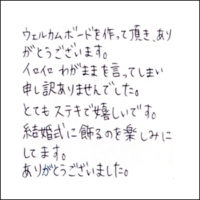 ウェルカムボードを作って頂き、あり
がとうございます。
イロイロ わがままを言ってしまい
申し訳ありませんでした。
とてもステキで嬉しいです。
結婚式に飾るのを楽しみに
してます。
ありがとうございました。